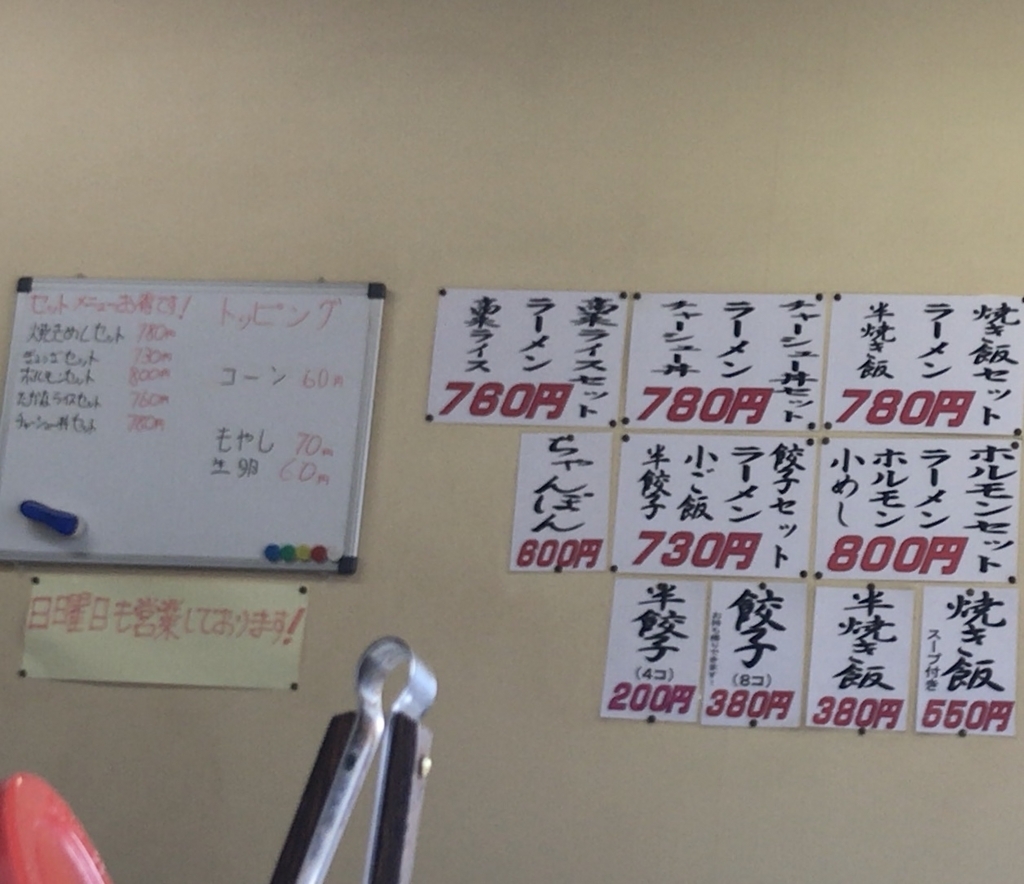 セットメニューお得です!
焼きめしセット 780円
ぎょうざセット 730円
ホルモンセット 800円
たかなライスセット 760円
チャーシュー丼セット 780円
トッピング
コーン 60円
もやし 70円
生卵 60円
日曜日も営業しております!
高菜ライスセット
ラーメン
高菜ライス
760円
チャーシュー丼セット
ラーメン
チャーシュー丼
780円
焼き飯セット
ラーメン
半焼き飯
780円
ちゃんぽん
600円
餃子セット
ラーメン
小ご飯
半餃子
730円
ホルモンセット
ラーメン
ホルモン
小めし
800円
半餃子
(4コ)
200円
餃子
お持ち帰りできます!
(8コ)
380円
半焼き飯
380円
焼き飯
スープ付き
550円